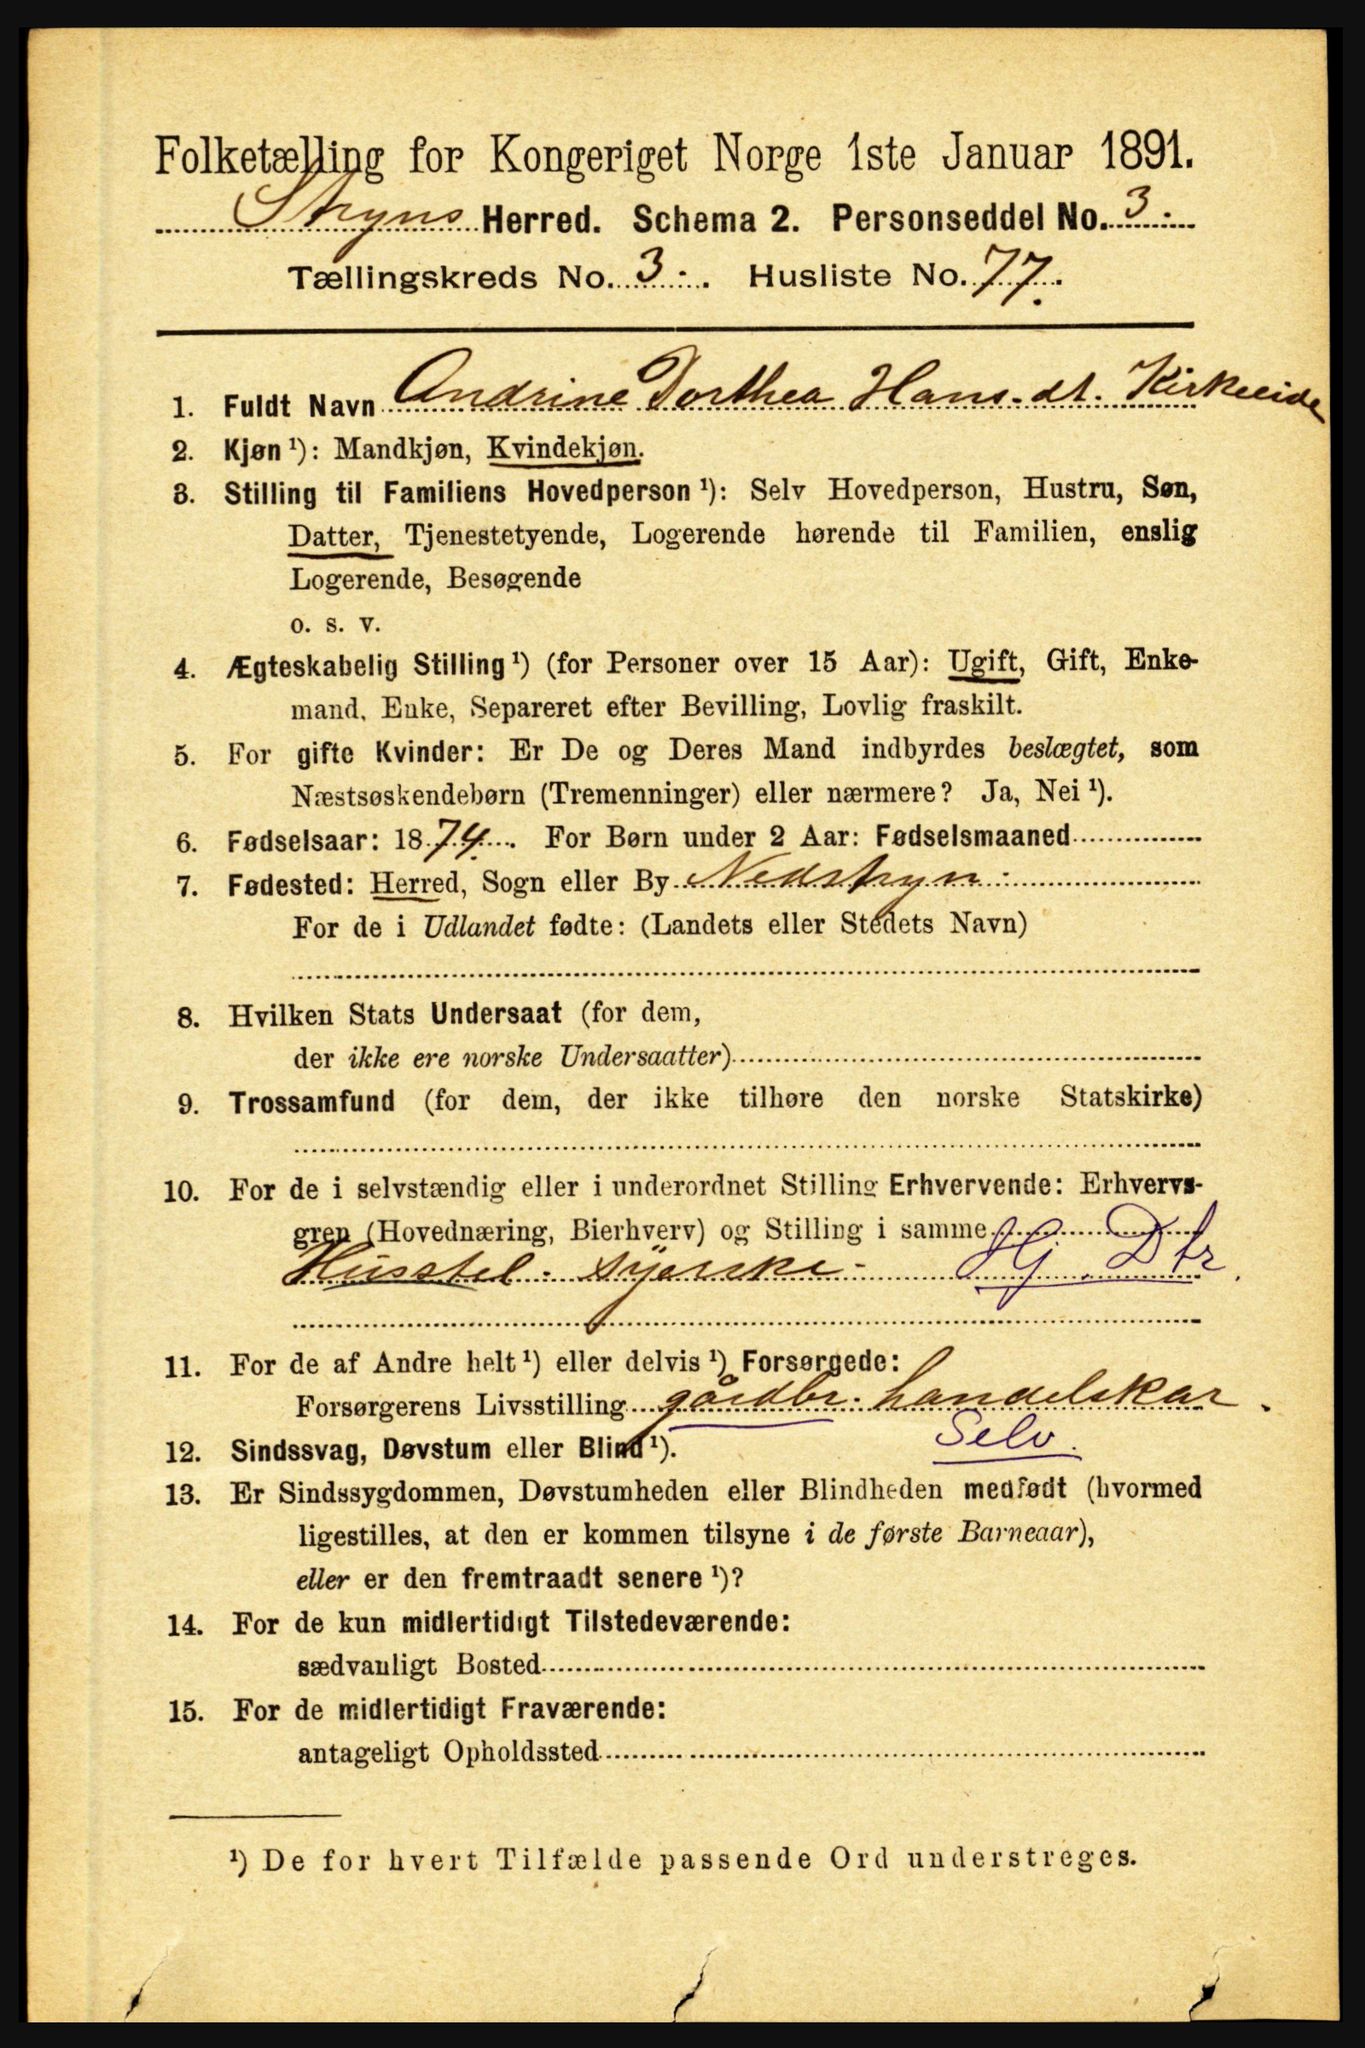 Folketælling for Kongeriget Norge 1ste Januar 1891.
Stryns Herred. Schema 2. Personseddel No. 3.
Tællingskreds No. 3. Husliste No. 77.
1. Fuldt Navn Andrine Dorthea Hans.dt. Kirkeeide
2. Kjøn ¹): Mandkjøn, Kvindekjøn.
3. Stilling til Familiens Hovedperson ¹): Selv Hovedperson, Hustru, Søn,
Datter, Tjenestetyende, Logerende hørende til Familien, enslig
Logerende, Besøgende
o. s. v.
4. Ægteskabelig Stilling ¹) (for Personer over 15 Aar): Ugift, Gift, Enke-
mand, Enke, Separeret efter Bevilling, Lovlig fraskilt.
5. For gifte Kvinder: Er De og Deres Mand indbyrdes beslægtet, som
Næstsøskendebørn (Tremenninger) eller nærmere? Ja, Nei ¹).
6. Fødselsaar: 1874. For Børn under 2 Aar: Fødselsmaaned
7. Fødested: Herred, Sogn eller By Nedstryn.
For de i Udlandet fødte: (Landets eller Stedets Navn)
8. Hvilken Stats Undersaat (for dem,
der ikke ere norske Undersaatter)
9. Trossamfund (for dem, der ikke tilhøre den norske Statskirke)
10. For de i selvstændig eller i underordnet Stilling Erhvervende: Erhvervs-
gren (Hovednæring, Bierhverv) og Stilling i samme
Husstel. syerske. Hj. Dtr.
11. For de af Andre helt ¹) eller delvis ¹) Forsørgede:
Forsørgerens Livsstilling gårdbr. handelskar.
12. Sindssvag, Døvstum eller Blind ¹). Selv.
13. Er Sindssygdommen, Døvstumheden eller Blindheden medfødt (hvormed
ligestilles, at den er kommen tilsyne i de første Barneaar),
eller er den fremtraadt senere ¹)?
14. For de kun midlertidigt Tilstedeværende:
sædvanligt Bosted
15. For de midlertidigt Fraværende:
antageligt Opholdssted
¹) De for hvert Tilfælde passende Ord understreges.